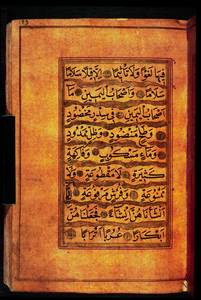 فِيهَا لَغْوًا وَلَا تَأْثِيمًا إِلَّا قِيلًا سَلَامًا
سَلَامًا وَأَصْحَابُ الْيَمِينِ مَا
أَصْحَابُ الْيَمِينِ فِي سِدْرٍ مَخْضُودٍ
وَطَلْحٍ مَنْضُودٍ وَظِلٍّ مَمْدُودٍ
وَمَاءٍ مَسْكُوبٍ وَفَاكِهَةٍ
كَثِيرَةٍ لَا مَقْطُوعَةٍ وَلَا
مَمْنُوعَةٍ وَفُرُشٍ مَرْفُوعَةٍ إِنَّا
أَنْشَأْنَاهُنَّ إِنْشَاءً فَجَعَلْنَاهُنَّ
أَبْكَارًا عُرُبًا أَتْرَابًا